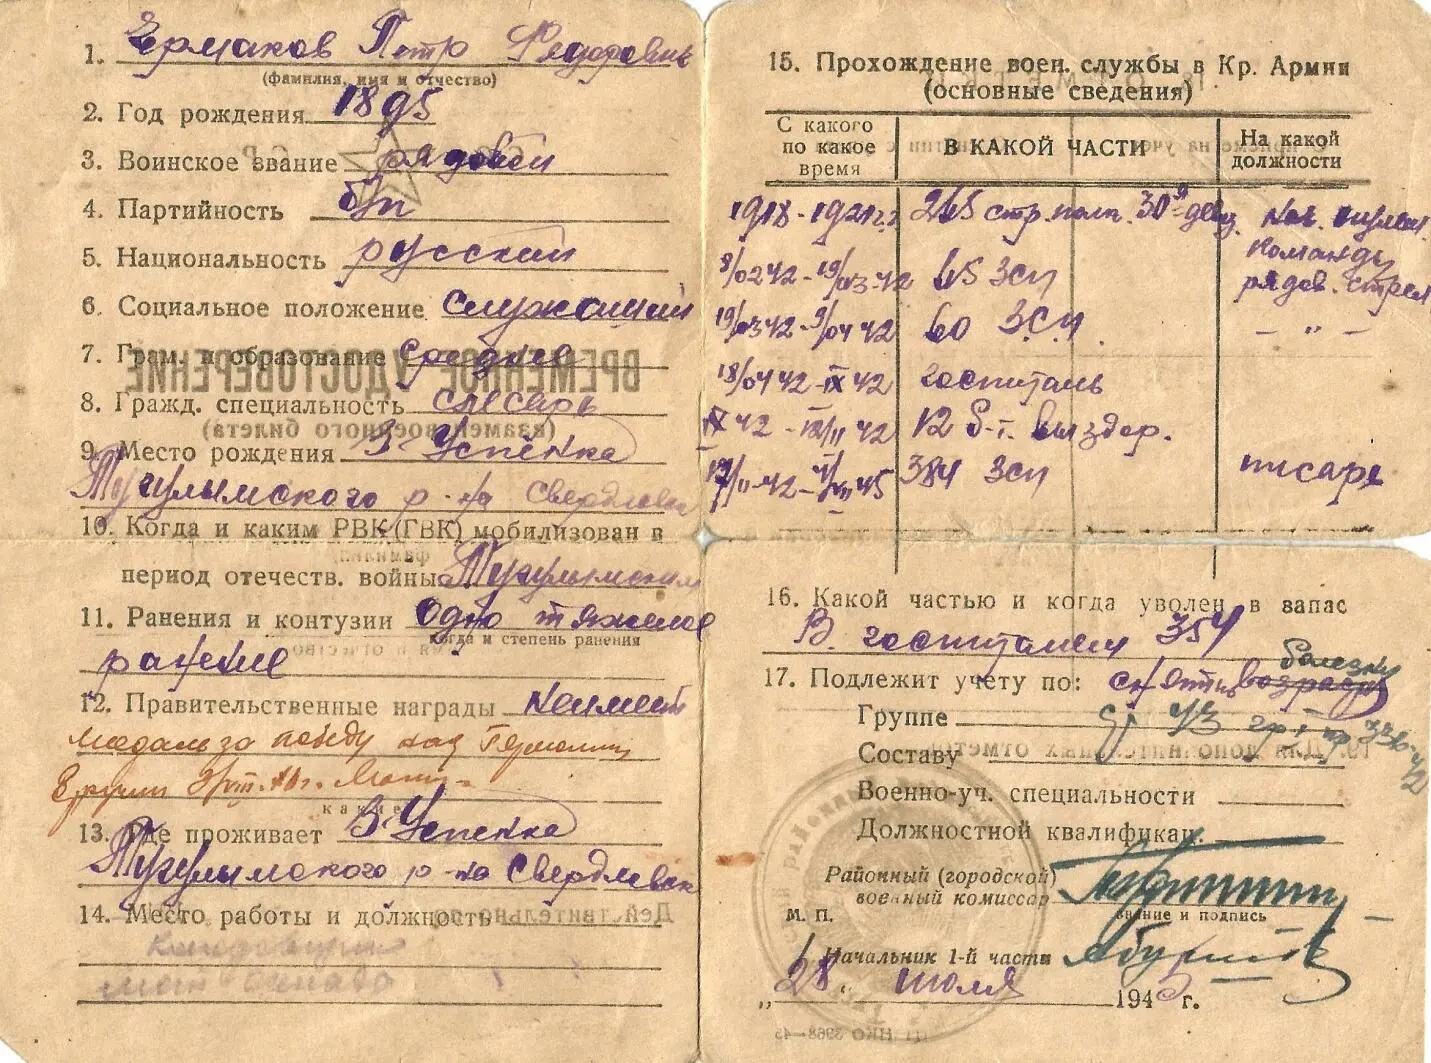 1. Ермаков Петр Федорович
(фамилия, имя и отчество)
2. Год рождения 1895
3. Воинское звание рядовой
4. Партийность б/п
5. Национальность русский
6. Социальное положение служащий
7. Грам. и образование среднее
8. Гражд. специальность слесарь
9. Место рождения З-Успенка
Тугулымского р-на Свердловск
10. Когда и каким РВК (ГВК) мобилизован в
период отечеств. войны Тугулымским
11. Ранения и контузии Одно тяжелое
когда и степень ранения
ранение
12. Правительственные награды
медаль за победу над Германии
какие
13. Где проживает З-Успенка
Тугулымского р-на Свердловск
14. Место работы и должность
15. Прохождение воен. службы в Кр. Армии
(основные сведения)
С какого по какое время В КАКОЙ ЧАСТИ На какой должности
1918-1921 г.г. 265 стр. полк. 30й див. Нач. пулем.
команды
8/02 42-19/03-42 45 ЗСП рядов. стрел
19/03 42-9/04 42 60 ЗСП. — " —
18/04 42-IX 42 госпиталь
IX 42 - 42 12 б-т. выздор.
42 - 45 384 ЗСП писарь
16. Какой частью и когда уволен в запас
В. госпиталем 354
болезни
17. Подлежит учету по: снят возрасту
Группе
Составу
Военно-уч. специальности
Должностной квалификац.
Районный (городской)
военный комиссар
М. П. звание и подпись
Начальник 1-й части
„28" июля 1945 г.